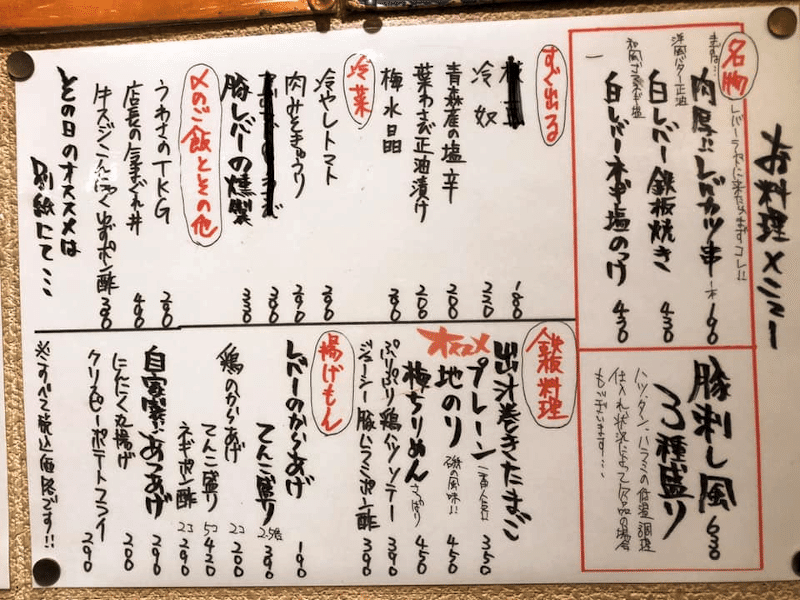 お料理メニュー
名物
レバーラヤに来たらまずコレ!!
まずは…
肉厚上レバカツ串 一本 190
洋風バター正油
白レバー鉄板焼き 430
和風ゴマネギ塩
白レバーネギ塩のっけ 430
豚刺し風
3種盛り 630
ハツ、タン、ハラミの低温調理
仕入れ状況によって欠品の場合
もございます…
すぐ出る
180
冷奴 220
青森産の塩辛 200
葉わさび正油漬け 200
梅水晶 390
冷菜
冷やしトマト 290
肉みそきゅうり 290
390
豚レバーの燻製 330
〆のご飯とその他
うわさのTKG 290
店長の気まぐれ丼 490
牛スジこんにゃくゆずポン酢 390
その日のオススメは
別紙にて…
鉄板料理
出汁巻きたまご
プレーン 一番人気!! 350
オススメ
地のり 磯の風味!! 450
梅ちりめん さっぱり 450
ぷりぷり鶏ハツソテー 390
ジューシー豚ハラミポン酢 390
揚げもん
レバーのからあげ 190
てんこ盛り 2.5倍 390
鶏のからあげ 2コ 200
てんこ盛り 5コ 420
ネギポン酢 2コ 290
自家製あつあげ 290
にんにく丸揚げ 200
クリスピーポテトフライ 290
※すべて税込価格です!!